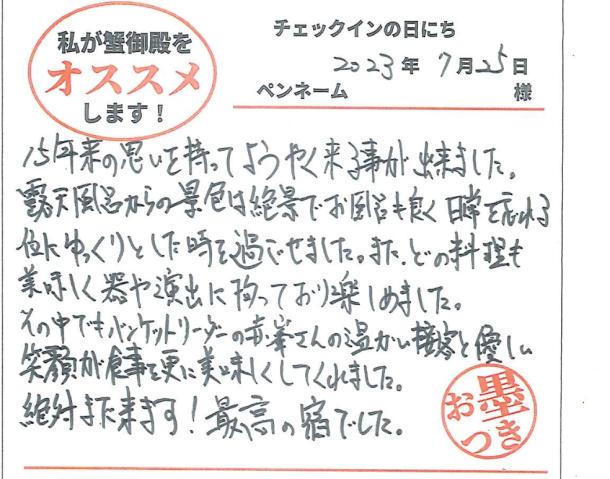 私が蟹御殿を
オススメ
します!
チェックインの日にち
2023年 7月25日
ペンネーム 様
15年来の思いを持ってようやく来る事が出来ました。
露天風呂からの景色は絶景でお風呂も良く日常を忘れる
位にゆっくりとした時を過ごせました。また、どの料理も
美味しく器や演出に拘っており楽しめました。
その中でもバンケットリーダーの赤峯さんの温かい接客と優しい
笑顔が食事を更に美味しくしてくれました。
絶対また来ます!最高の宿でした。
お墨つき